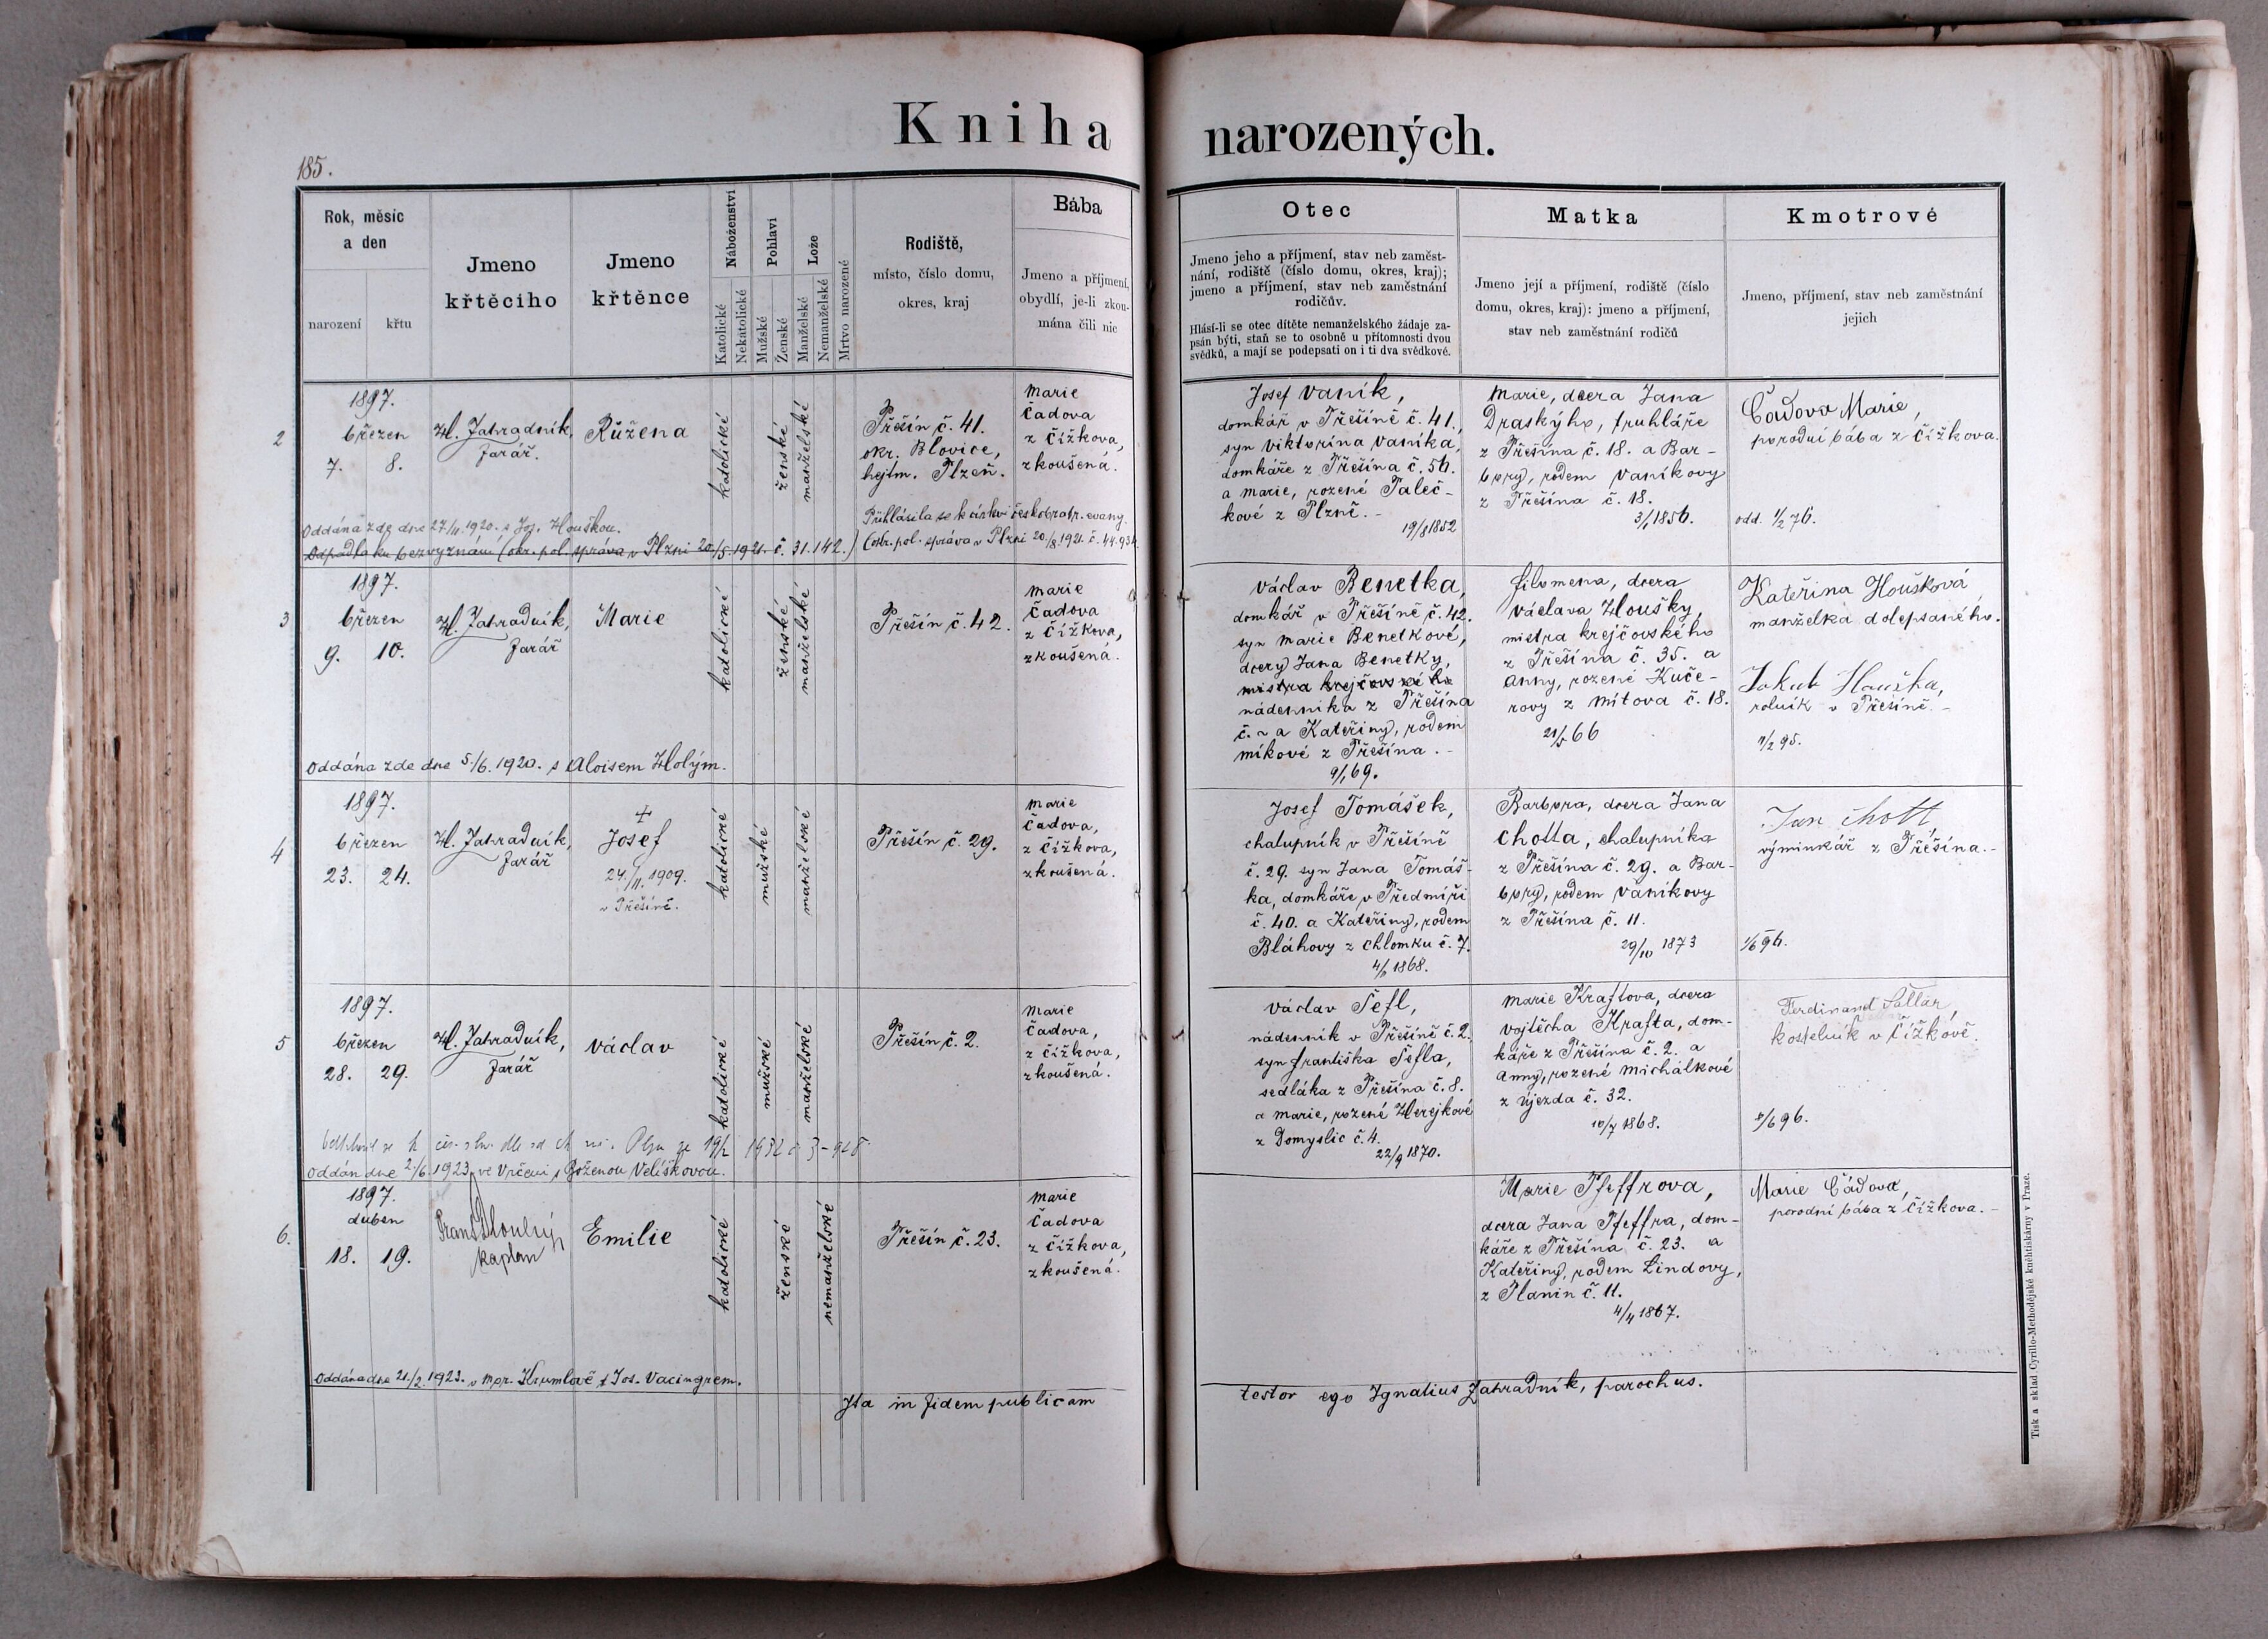 Kniha narozených.
185.
Rok, měsíc a den
narození
křtu
Jmeno křtěcího
Jmeno křtěnce
Náboženství
Katolické
Nekatolické
Pohlaví
Mužské
Ženské
Lože
Manželské
Nemanželské
Mrtvo narozené
Rodiště,
místo, číslo domu,
okres, kraj
Bába
Jmeno a příjmení,
obydlí, je-li zkou-
mána čili nic
Otec
Jmeno jeho a příjmení, stav neb zaměst-
nání, rodiště (číslo domu, okres, kraj);
jmeno a příjmení, stav neb zaměstnání
rodičův.
Hlásí-li se otec dítěte nemanželského žádaje za-
psán býti, staň se to osobně u přítomnosti dvou
svědků, a mají se podepsati on i ti dva svědkové.
Matka
Jmeno její a příjmení, rodiště (číslo
domu, okres, kraj): jmeno a příjmení,
stav neb zaměstnání rodičů
Kmotrové
Jmeno, příjmení, stav neb zaměstnání
jejich
2
1897.
březen
7. 8.
Zahradník,
farář.
Růžena
katolické
ženské
manželské
Přešín č. 41.
okr. Blovice,
hejtm. Plzeň.
Marie
Čadova
z Čížkova,
zkoušená.
Josef Vaník,
domkář v Přešíně č. 41.,
syn Viktorina Vaníka,
domkáře z Přešína č. 56.
a Marie, rozené Paleč-
kové z Plzně.
19/8 1852
Marie, dcera Jana
Draskýho, truhláře
z Přešína č. 18. a Bar-
bory, rodem Vaníkovy
z Přešína č. 18.
1856.
Čadova Marie,
porodní bába z Čížkova.
odd. 1/2 76.
Oddána zde dne 27./11. 1920. s Jos. Houškou.
Přihlásila se k církvi českobratr. evang.
Odpadla ku bezvyznání (okr. pol. správa v Plzni 20./5. 1921. č. 31.142.)
(okr. pol. správa v Plzni 20./8. 1921. č. 44.934.
3
1897.
březen
9. 10.
Zahradník,
farář
Marie
katolické
ženské
manželské
Přešín č. 42.
Marie
Čadova
z Čížkova,
zkoušená.
Václav Benetka,
domkář v Přešíně č. 42.
syn Marie Benetkové,
dcery Jana Benetky,
mistra krejčovského
nádenníka z Přešína
č. ~ a Kateřiny, rodem
Míkové z Přešína.
9/1 69.
Filomena, dcera
Václava Houšky,
mistra krejčovského
z Přešína č. 35. a
Anny, rozené Kuče-
rovy z Mítova č. 18.
21/5 66
Kateřina Houšková
manželka dolepsaného.
Jakub Houška,
rolník v Přešíně.
/2 95.
Oddána zde dne 5./6. 1920. s Aloisem Holým.
4
1897.
březen
23. 24.
Zahradník,
farář
+
Josef
24./11. 1909.
v Přešíně.
katolické
mužské
manželské
Přešín č. 29.
Marie
Čadova,
z Čížkova,
zkoušená.
Josef Tomášek,
chalupník v Přešíně
č. 29. syn Jana Tomáš-
ka, domkáře v Předmíři
č. 40. a Kateřiny, rodem
Bláhovy z Chlomku č. 7.
1868.
Barbora, dcera Jana
Chotta, chalupníka
z Přešína č. 29. a Bar-
bory, rodem Vaníkovy
z Přešína č. 11.
29/10 1873
Jan Chott,
výminkář z Přešína.
96.
5
1897.
březen
28. 29.
Zahradník,
farář
Václav
katolické
mužské
manželské
Přešín č. 2.
Marie
Čadova,
z Čížkova,
zkoušená.
Václav Šefl,
nádenník v Přešíně č. 2.
syn Františka Šefla,
sedláka z Přešína č. 8.
a Marie, rozené Herejkové
z Domyslic č. 4.
22/9 1870.
Marie Kraftova, dcera
Vojtěcha Krafta, dom-
káře z Přešína č. 2. a
Anny, rozené Michálkové
z Újezda č. 32.
10/7 1868.
Ferdinand
kostelník v Čížkově.
/6 96.
Oddán dne 2./6. 1923. ve Vrčeni s Boženou Velíškovou.
6.
1897.
duben
18. 19.
Frant. Dlouhý
kaplan
Emilie
katolické
ženské
nemanželské
Přešín č. 23.
Marie
Čadova
z Čížkova,
zkoušená.
Marie Pfeffrova,
dcera Jana Pfeffra, dom-
káře z Přešína č. 23. a
Kateřiny, rodem Lindovy,
z Planin č. 11.
4/4 1867.
Marie Čádova,
porodní bába z Čížkova.
Oddána dne 21./2. 1923. v Mor. Krumlově s Jos. Vacingrem.
Ita in fidem publicam testor ego Ignatius Zahradník, parochus.
Tisk a sklad Cyrillo-Methodějské knihtiskárny v Praze.